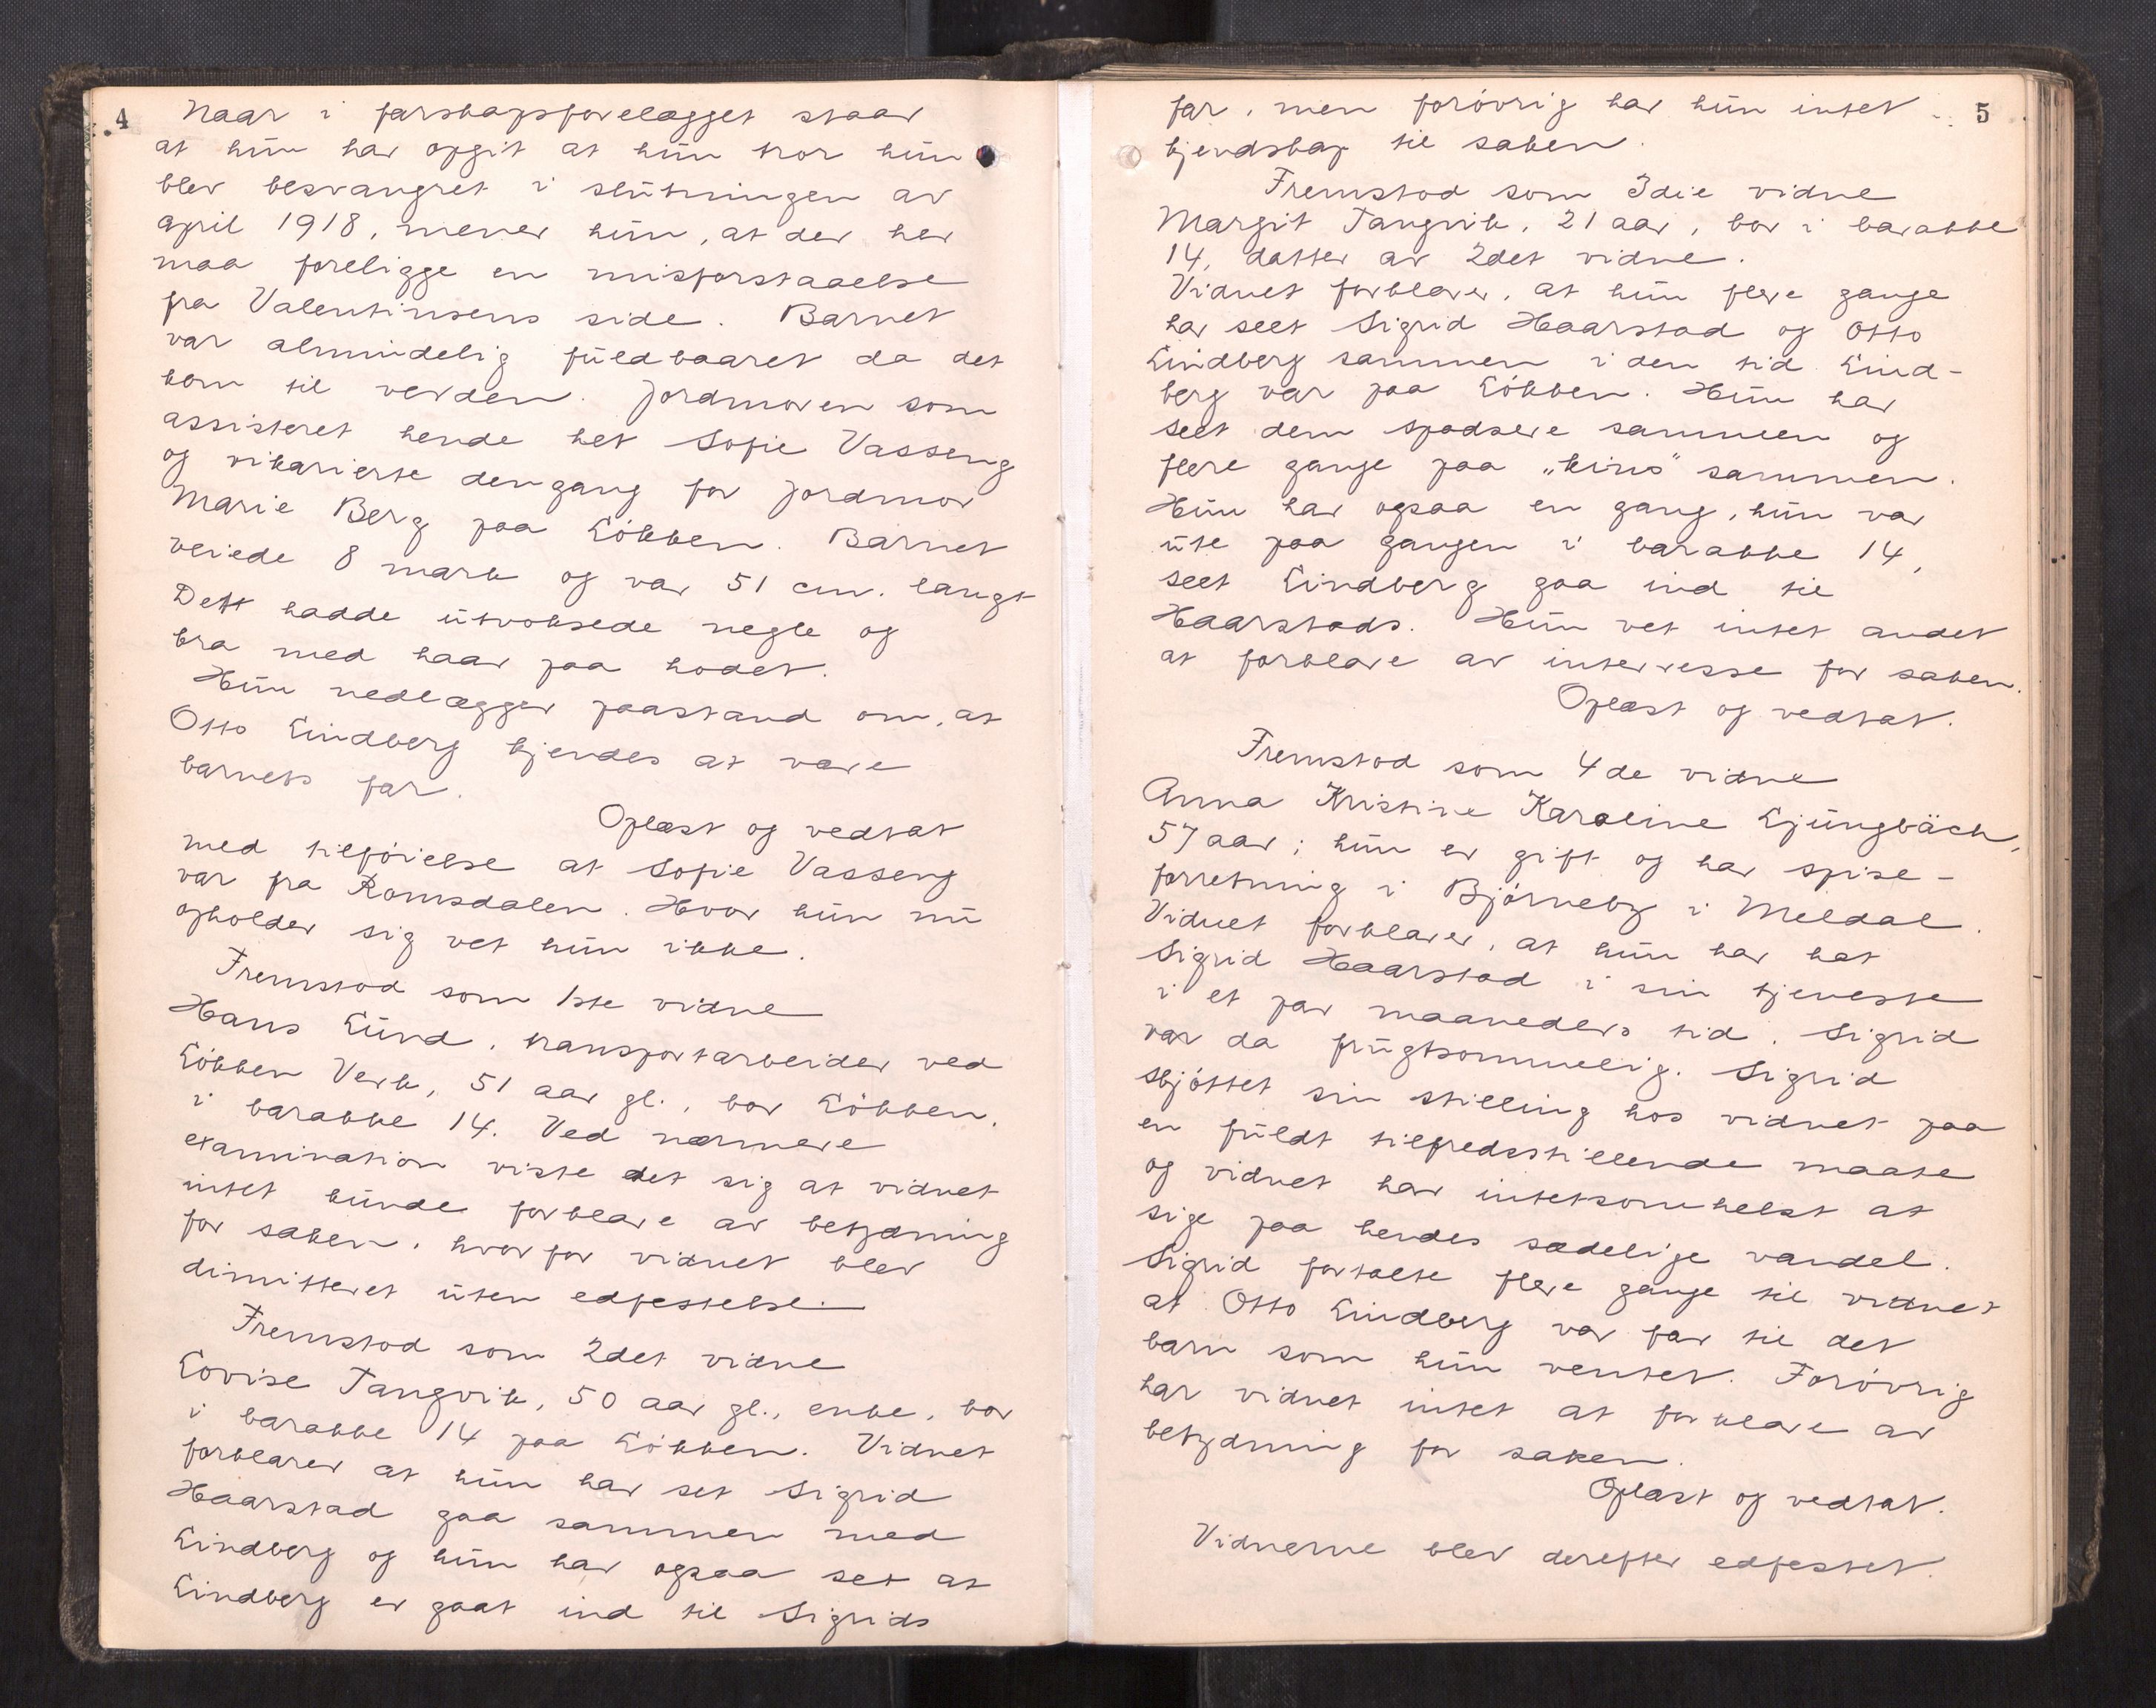 4
Naar i farskapsforelægget staar
at hun har opgit at hun tror hun
blev besvangret i slutningen av
april 1918, mener hun, at der her
maa foreligge en misforstaaelse
fra Valentinsens side. Barnet
var almindelig fuldbaaret da det
kom til verden. Jordmoren som
assisteret hende het Sofie Vasseng
og vikarierte dengang for jordmor
Marie Berg paa Løkken. Barnet
veiede 8 mark og var 51 cm. langt
Det hadde utvoksede negle og
bra med haar paa hodet.
Hun nedlægger paastand om, at
Otto Lindberg kjendes at være
barnets far.
Oplæst og vedtat
med tilføielse at Sofie Vasseng
var fra Romsdalen. Hvor hun nu
opholder sig vet hun ikke.
Fremstod som 1ste vidne
Hans Lund, transportarbeider ved
Løkken Verk, 51 aar gl., bor Løkken,
i barakke 14. Ved nærmere
examination viste det sig at vidnet
intet kunde forklare av betydning
for saken, hvorfor vidnet blev
dimitteret uten edfestelse.
Fremstod som 2det vidne
Lovise Tangvik, 50 aar gl., enke, bor
i barakke 14 paa Løkken. Vidnet
forklarer at hun har set Sigrid
Haarstad gaa sammen med
Lindberg og hun har ogsaa set at
Lindberg er gaat ind til Sigrids
5
far, men forøvrig har hun intet
kjendskap til saken.
Fremstod som 3die vidne
Margit Tangvik, 21 aar, bor i barakke
14, datter av 2det vidne.
Vidnet forklarer, at hun flere gange
har seet Sigrid Haarstad og Otto
Lindberg sammen i den tid Lind-
berg var paa Løkken. Hun har
seet dem spadsere sammen og
flere gange paa „kino" sammen.
Hun har ogsaa en gang, hun var
ute paa gangen i barakke 14,
seet Lindberg gaa ind til
Haarstads. Hun vet intet andet
at forklare av interresse for saken.
Oplæst og vedtat.
Fremstod som 4de vidne
Anna Kristine Karoline Ljungbäck,
57 aar; hun er gift og har spise-
forretning i Bjørneby i Meldal.
Vidnet forklarer, at hun har hat
Sigrid Haarstad i sin tjeneste
i et par maaneders tid. Sigrid
var da frugtsommelig. Sigrid
skjøttet sin stilling hos vidnet paa
en fuldt tilfredsstillende maate
og vidnet har intetsomhelst at
sige paa hendes sædelige vandel.
Sigrid fortalte flere gange til vidnet
at Otto Lindberg var far til det
barn som hun ventet. Forøvrig
har vidnet intet at forklare av
betydning for saken.
Oplæst og vedtat.
Vidnerne blev derefter edfestet.